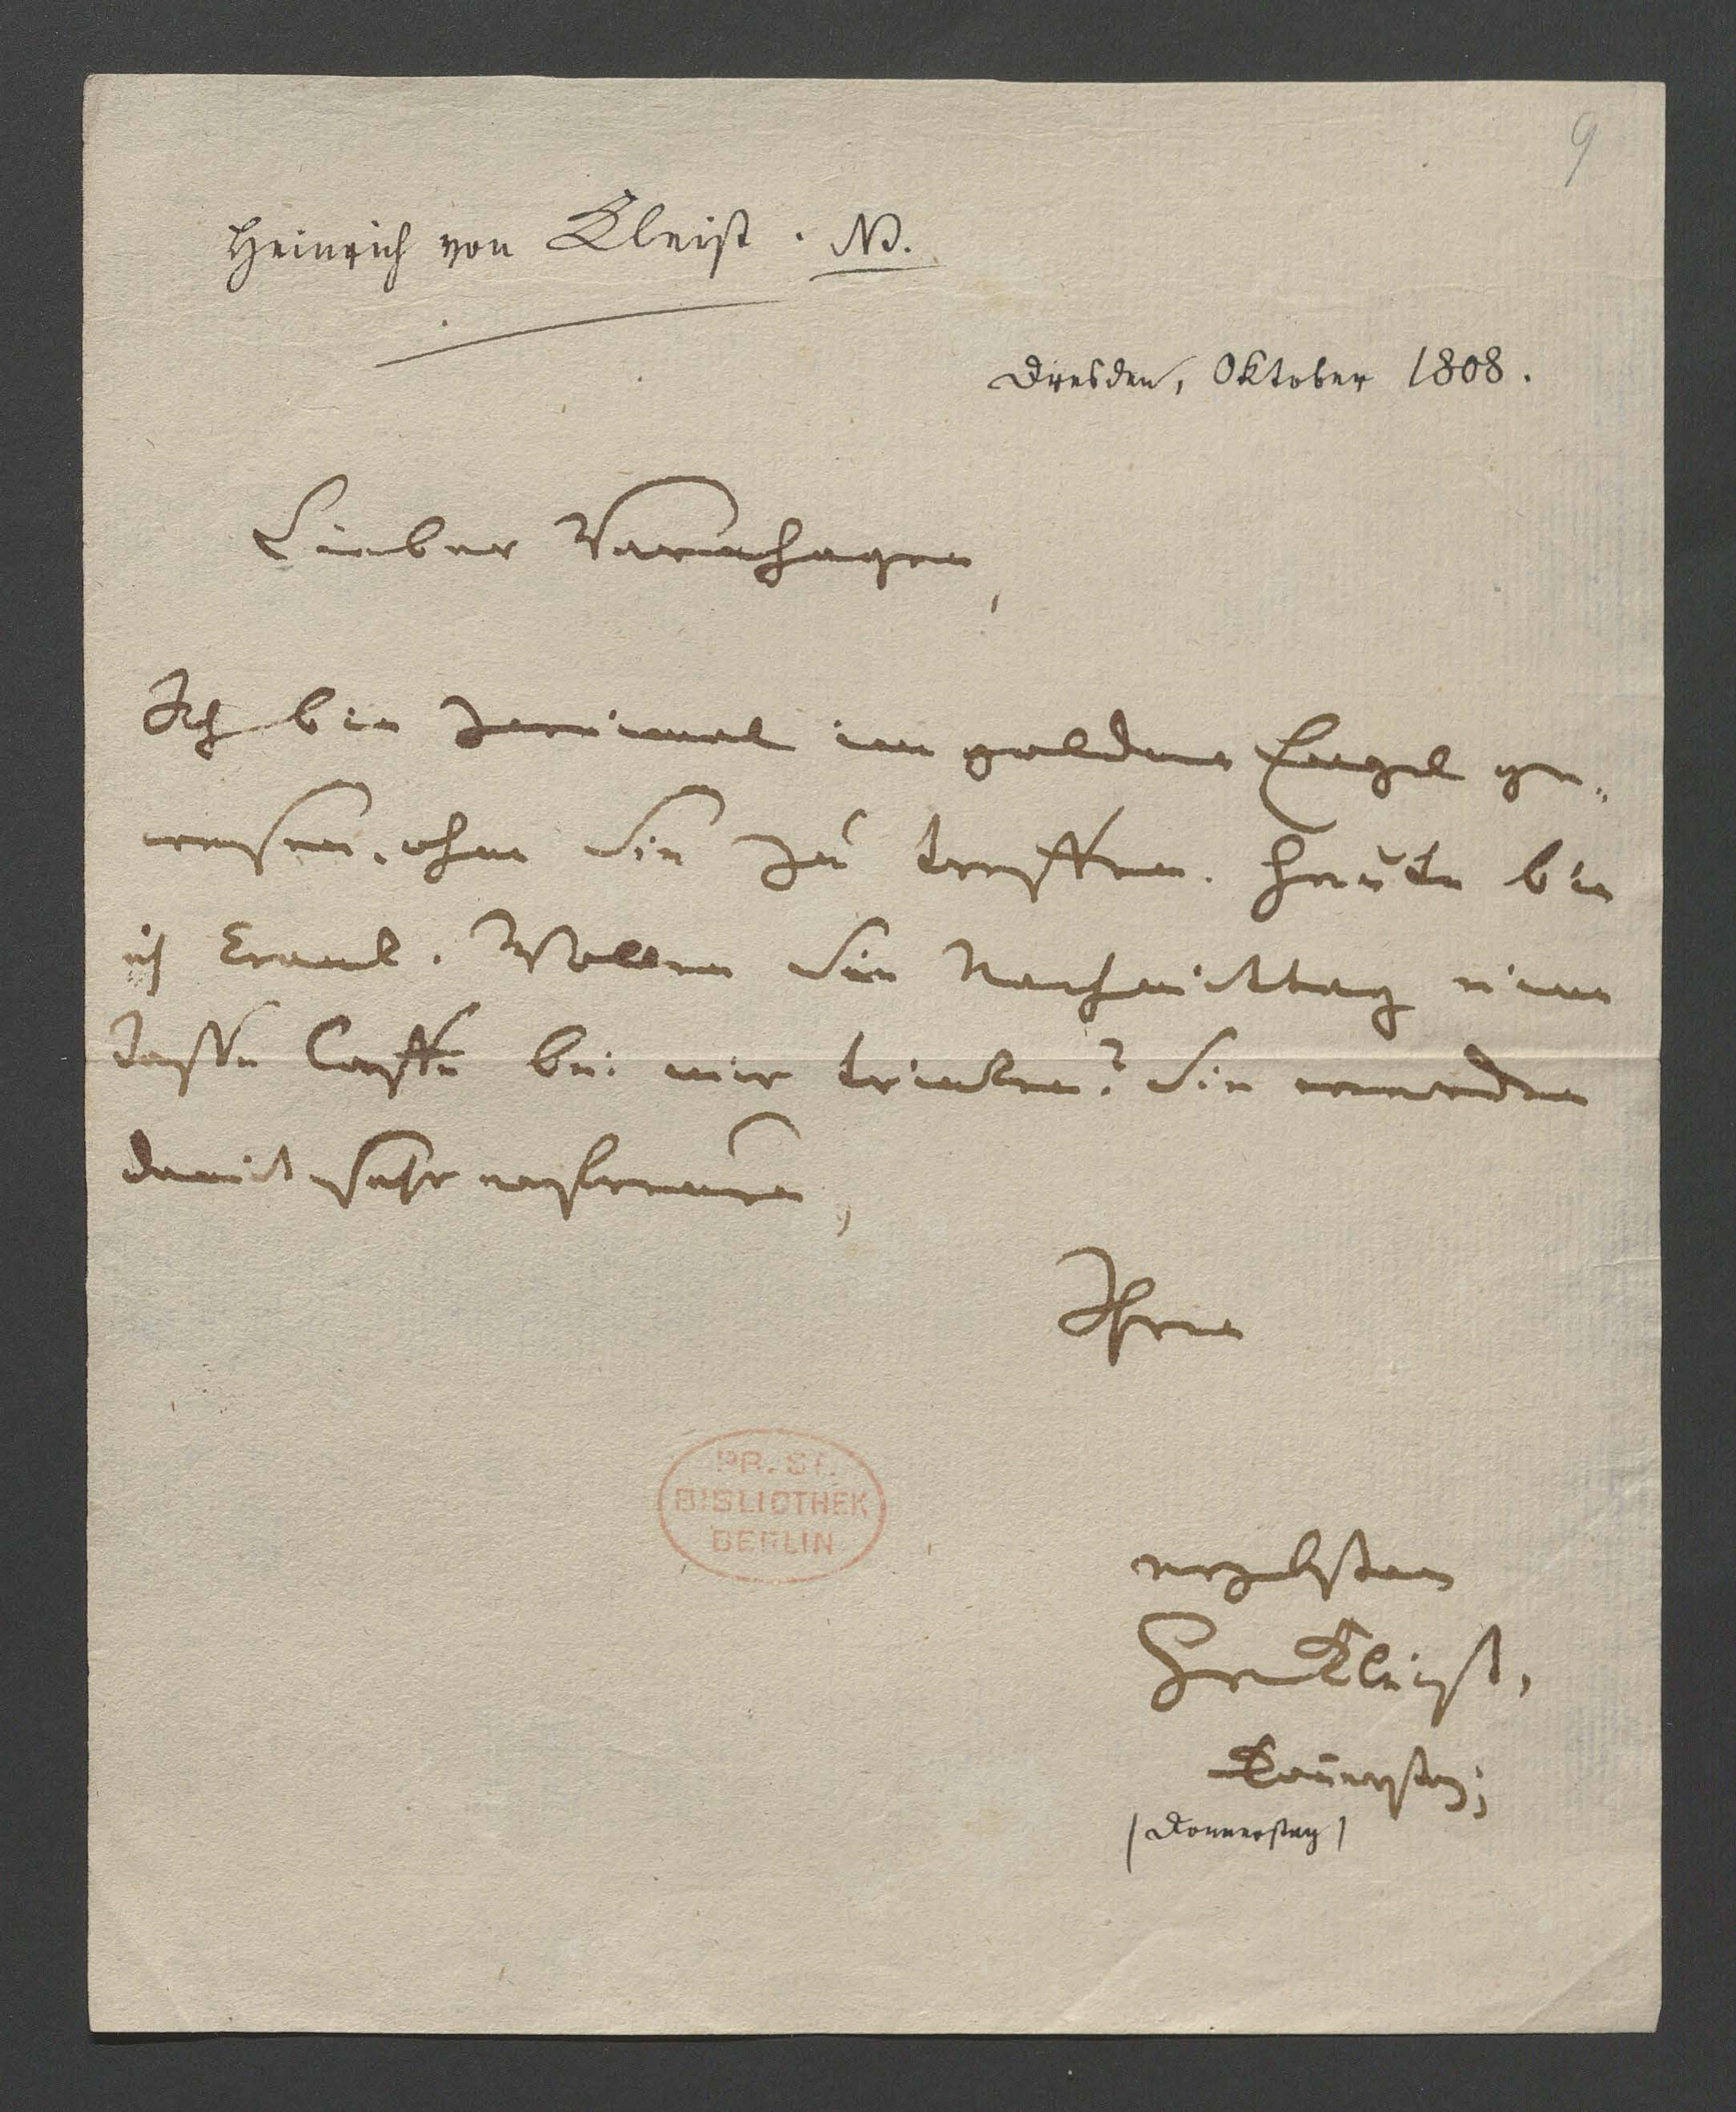 9
Heinrich von Kleist. NB.
Dresden, Oktober 1808.
Lieber Varnhagen,
Ich bin zweimal im goldnen Engel ge-
wesen, ohne Sie zu treffen. Heute bin
ich krank. Wollen Sie Nachmittag eine
Tasse Caffe bei mir trinken? Sie werden
damit sehr erfreuen,
Ihren
ergebsten
H. v. Kleist.
Donnerstag;
(Donnerstag)
PR. ST.
BIBLIOTHEK
BERLIN